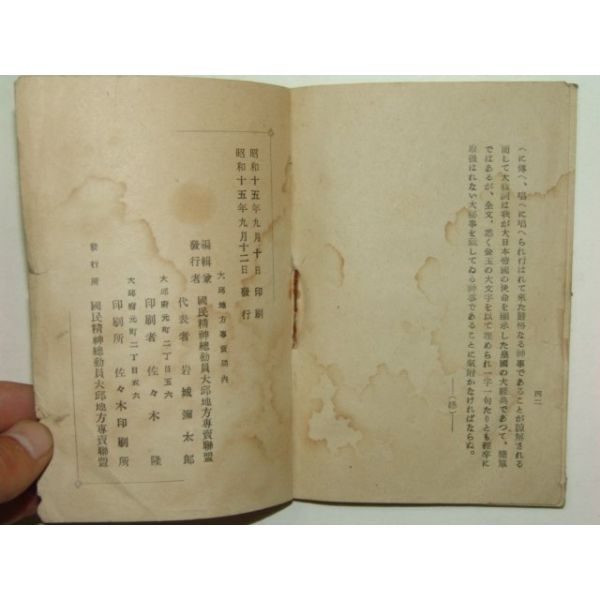 四二
へに傳へ、唱へに唱へられ行はれて來た嚴格なる神事であることが諒解される
而して大祓詞は我が大日本帝國の使命を顯示した皇國の大經典であつて、簡單
ではあるが、全文、悉く金玉の大文字を以て埋められ一字一句たりとも輕卒に
取扱はれない大神事を藏してゐる神事であることに氣附かなければならぬ。
――(終)――
昭和十五年九月十日印刷
昭和十五年九月十二日發行
大邱地方專賣局內
編輯兼發行者 國民精神總動員大邱地方專賣聯盟
代表者 岩城彌太郎
大邱府元町二丁目五六
印刷者 佐々木隆
大邱府元町二丁目五六
印刷所 佐々木印刷所
發行所 國民精神總動員大邱地方專賣聯盟